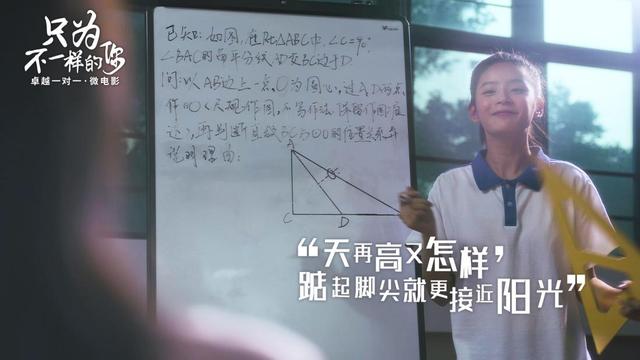 只为
不一样的你
卓越一对一·微电影
已知:如图,在Rt△ABC中,∠C=90°
∠BAC的角平分线AD交BC边于D
问:以AB边上一点O为圆心,过A,D两点
作⊙O(尺规作图,不写作法,保留作图痕
迹),再判断直线BC与⊙O的位置关系,并
说明理由:
A
C
D
“天再高又怎样,
踮起脚尖就更接近阳光”